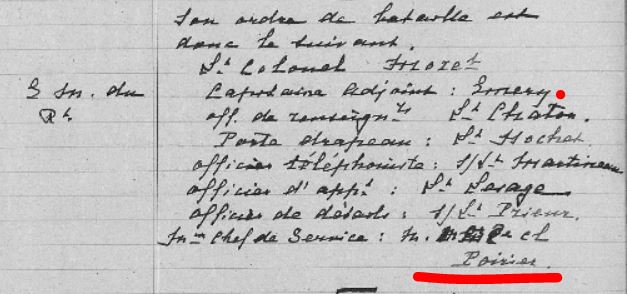 Son ordre de bataille est
donc le suivant.
Lt Colonel Moret
E. M. du
Rt.
Capitaine Adjoint : Emery
off. de renseignts Lt Chaton.
Porte drapeau : Lt Hochet
officier téléphoniste : S/Lt Martineau
officier d'appt : Lt Lesage
officier de détails : S/Lt Prieur.
Mn Chef de Service : M.
Poirier.